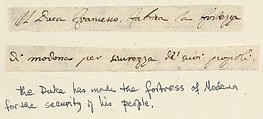 Il Duca Francesco, fabrica la fortezza
di modona per sicurezza de suoi popoli.
the Duke has made the fortress of Modena
for the security of his people.